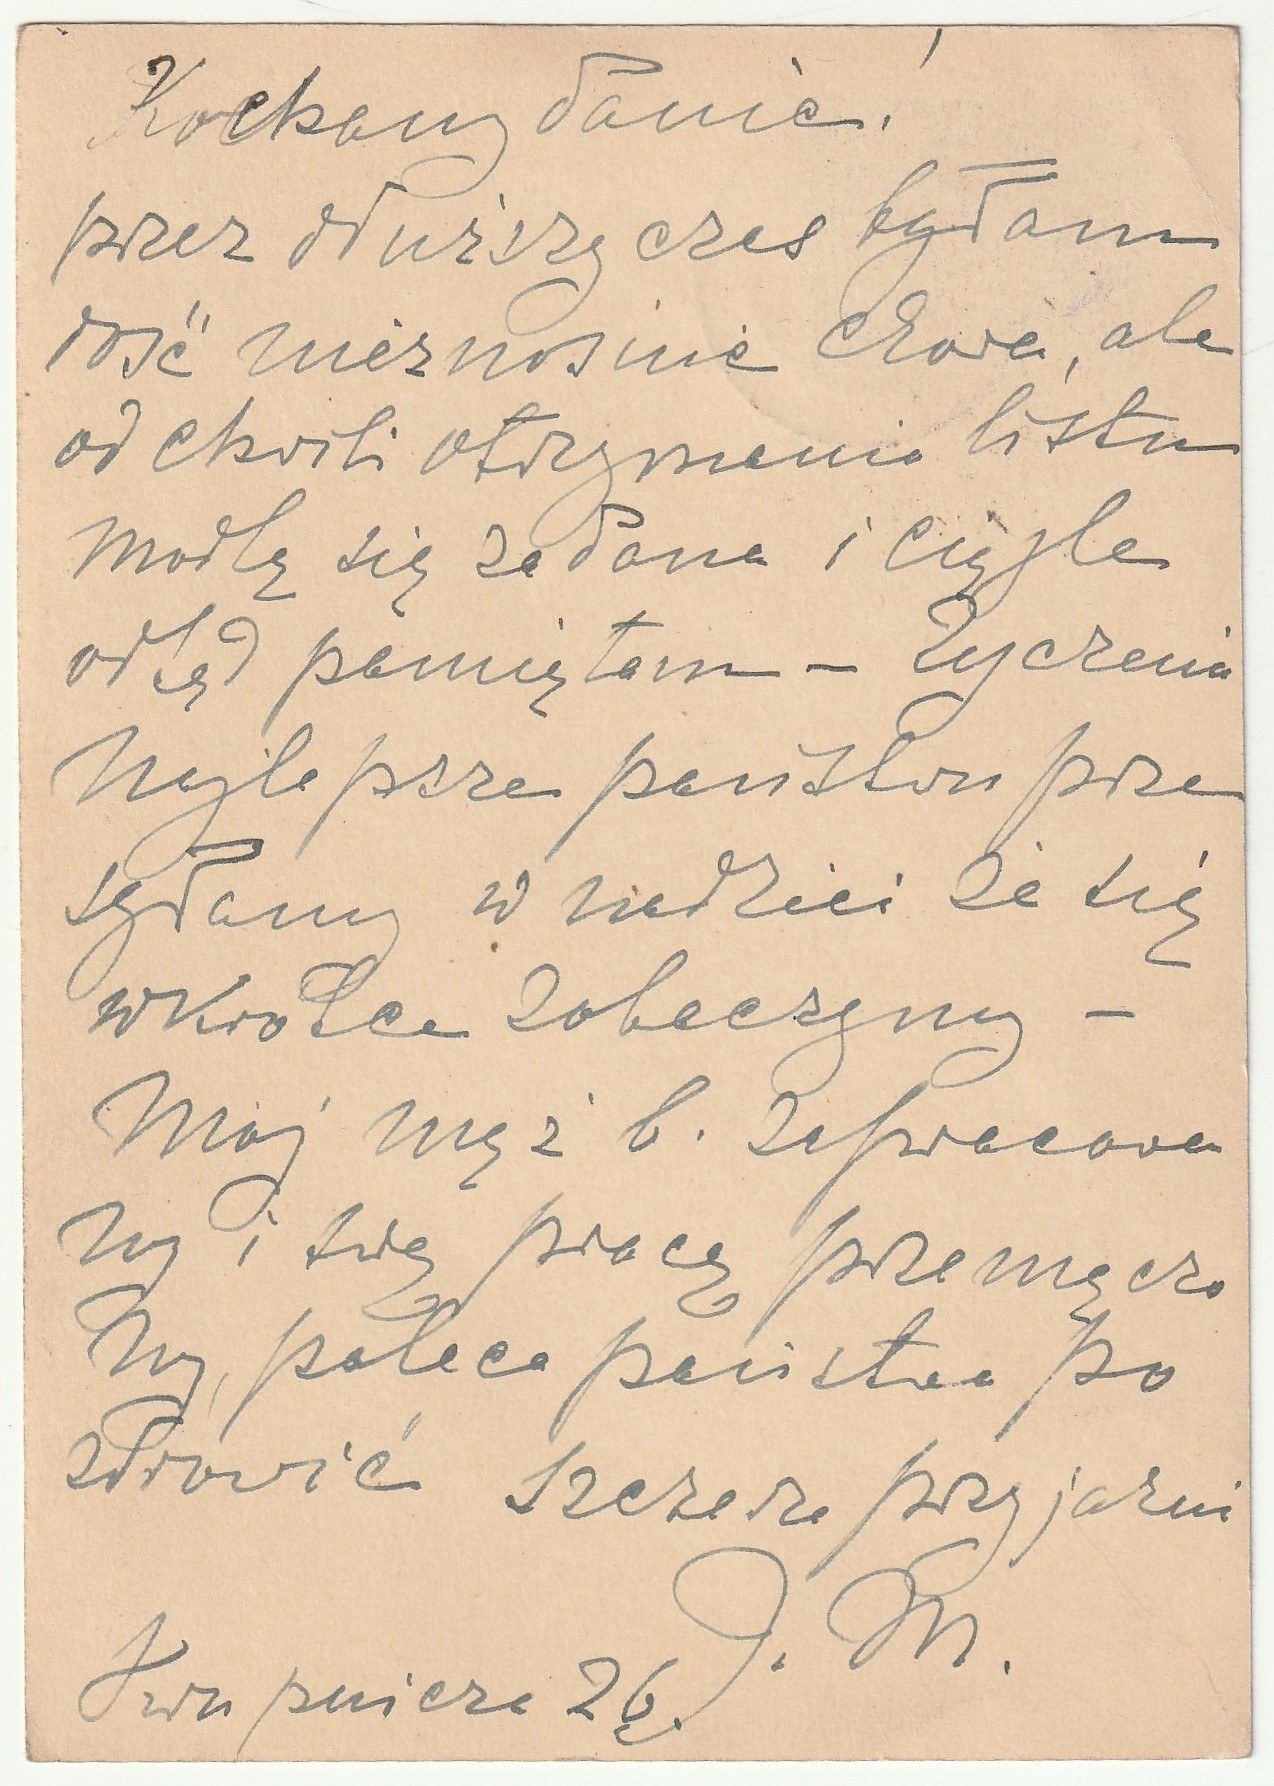 Kochany Panie!
przez dłuższy czas byłam
dość nieznośnie chora, ale
od chwili otrzymania listu
modlę się za Pana i ciągle
odtąd pamiętam – Życzenia
Najlepsze państwu prze
syłamy w nadziei że się
wkrótce zobaczymy –
Mój mąż b. zapracowa
ny i swą pracą przemęczo
ny, poleca państwa po
zdrowić szczerze przyjaźni
J. M.
Krupnicza 26.